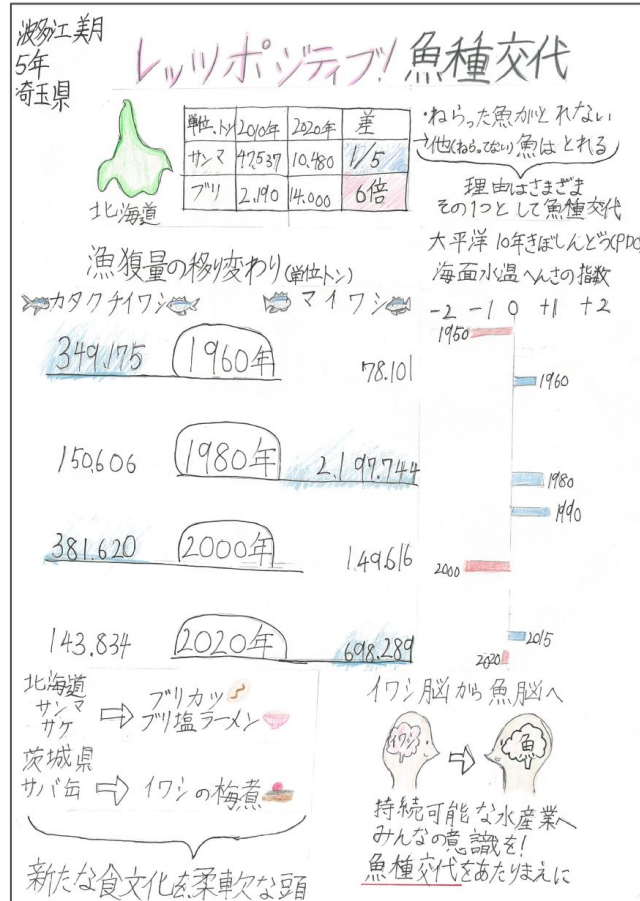 波多江 美月
5年
埼玉県
レッツポジティブ!魚種交代
単位.トン 2010年 2020年 差
サンマ 47,537 10.480 1/5
ブリ 2.190 14.000 6倍
北海道
・ねらった魚がとれない
→他(ねらってない)魚はとれる
理由はさまざま
その1つとして魚種交代
太平洋10年きぼしんどう(PDO
海面水温へんさの指数
-2 -1 0 +1 +2
1950
1960
1980
1990
2000
2015
2020
漁獲量の移り変わり(単位トン)
カタクチイワシ マイワシ
349.175 1960年 78.101
150.606 1980年 2.197.744
381.620 2000年 149.616
143.834 2020年 698.289
北海道
サンマ
サケ
⇨ ブリカツ
ブリ塩ラーメン
茨城県
サバ缶 ⇨ イワシの梅煮
新たな食文化を柔軟な頭
イワシ脳から魚脳へ
イワシ ⇨ 魚
持続可能な水産業へ
みんなの意識を!
魚種交代をあたりまえに